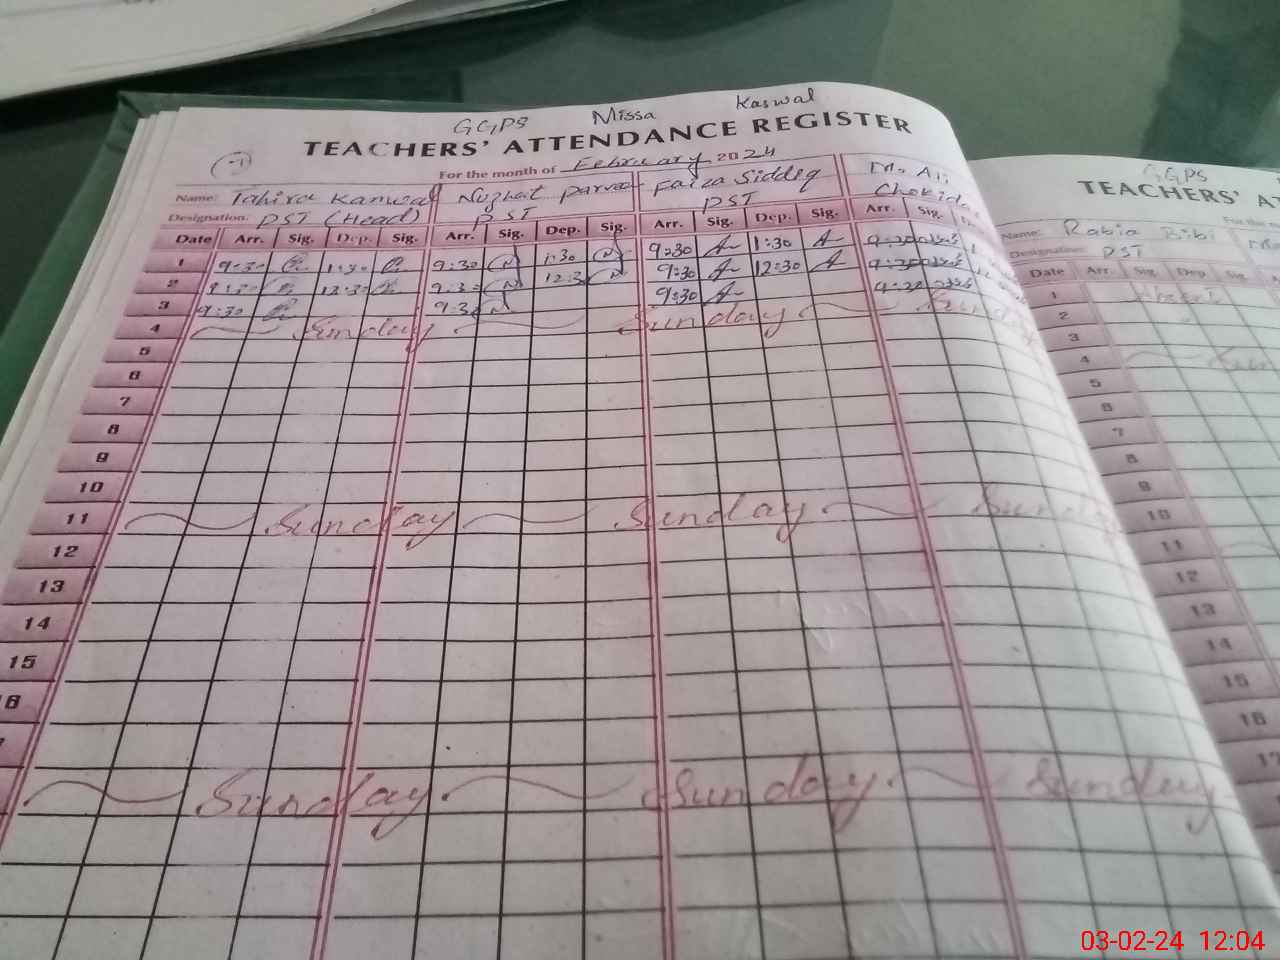 GGPS Missa Kaswal
TEACHERS' ATTENDANCE REGISTER
(1)
For the month of February 2024
Name: Tahira Kanwal Nuzhat Parveen Faiza Siddiq M. Ali
Designation: PST (Head) PST PST Chokidar
Date Arr. Sig. Dep. Sig. Arr. Sig. Dep. Sig. Arr. Sig. Dep. Sig. Arr. Sig.
1 9:30 1:30 9:30 1:30 9:30 1:30
2 9:30 12:30 9:30 12:30 9:30 12:30
3 9:30 9:30 9:30
4 Sunday Sunday Sunday
5
6
7
8
9
10
11 Sunday Sunday Sunday
12
13
14
15
Sunday Sunday Sunday
GGPS
TEACHERS' AT
Name: Rabia Bibi
Designation: PST
Date Arr. Sig. Dep. Sig.
1
2
3
4
5
6
7
8
9
10
11
12
13
14
15
16
03-02-24 12:04